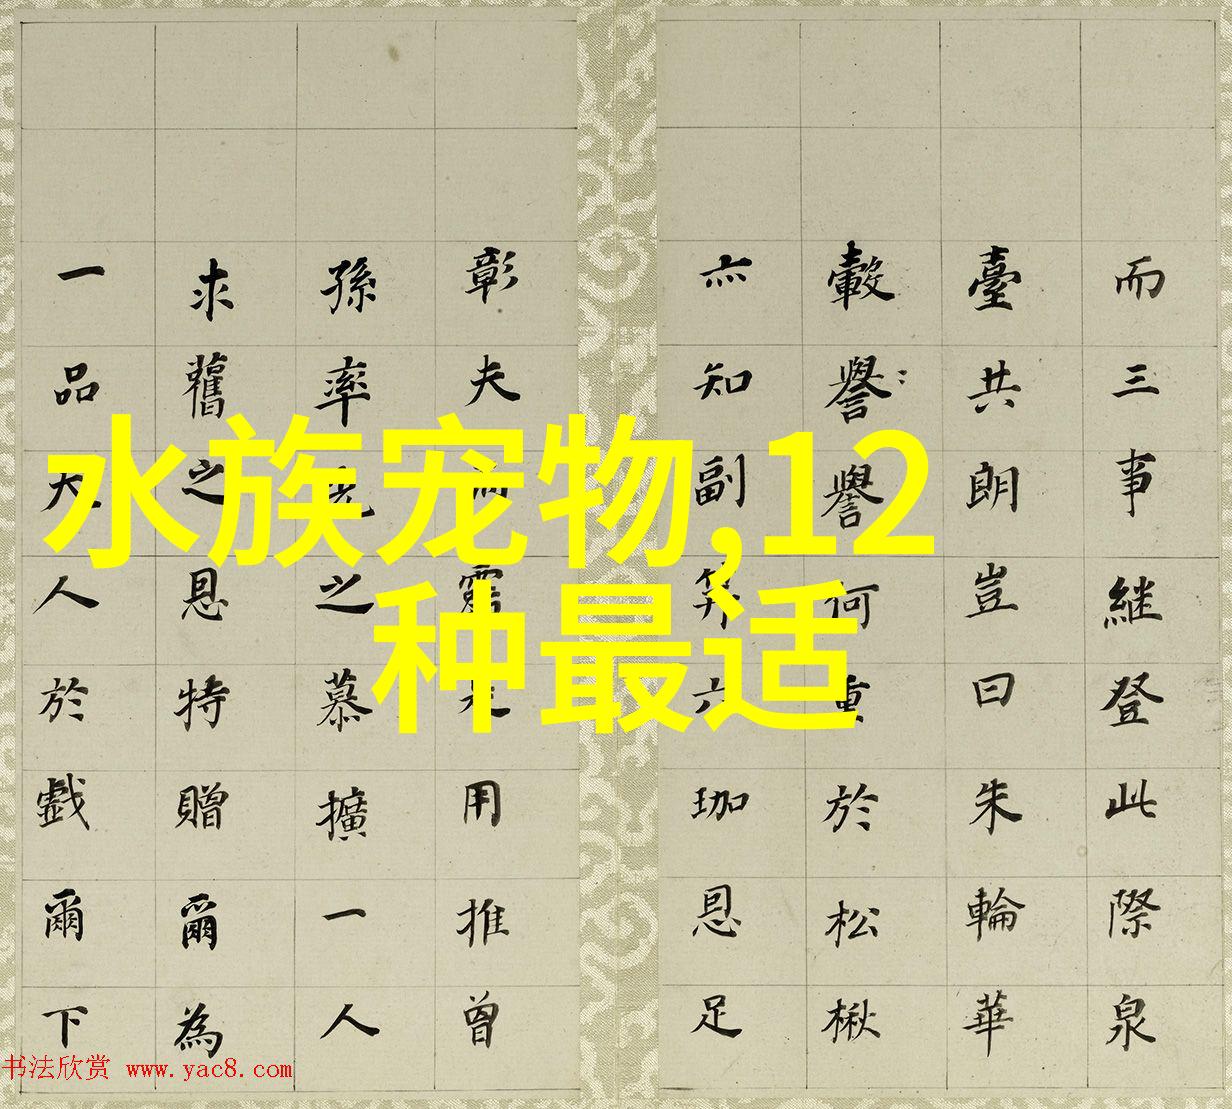 水族宠物,12
种最适
而三事継登此際泉
臺共朗豈曰朱輪華
轂譽譽何重於松楸
亦知副笄六珈恩足
彰夫用推曾
孫率之慕擴一人
求舊之恩特贈爾為
一品夫人於戲爾下
书法欣赏 www.yac8.com